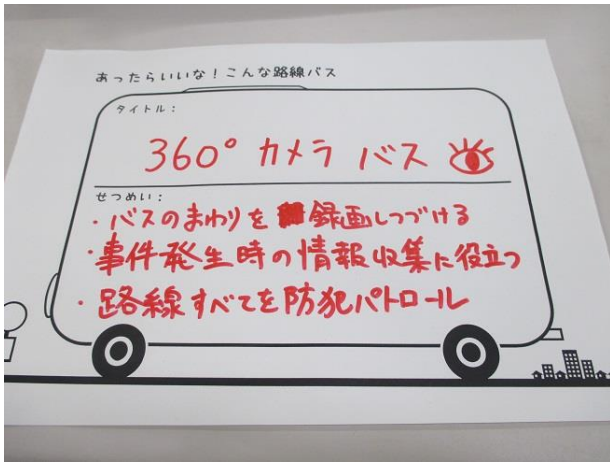 あったらいいな！こんな路線バス
タイトル：
360° カメラ バス
せつめい：
・バスのまわりを録画しつづける
・事件発生時の情報収集に役立つ
・路線すべてを防犯パトロール